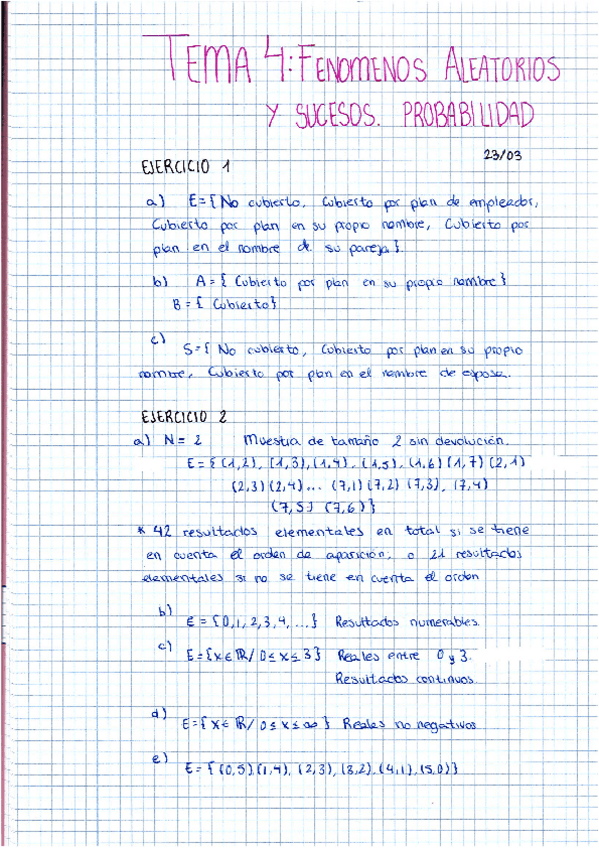 TEMA 4: FENOMENOS ALEATORIOS
Y SUCESOS. PROBABILIDAD
23/03
EJERCICIO 1
a) E={No cubierto, Cubierto por plan de empleador,
Cubierto por plan en su propio nombre, Cubierto por
plan en el nombre d. su pareja}.
b) A={Cubierto por plan en su propio nombre}
B={Cubierto}
c) S={No cubierto, Cubierto por plan en su propio
nombre, Cubierto por plan en el nombre de esposa.
EJERCICIO 2
a) N=2 Muestra de tamaño 2 sin devolución.
E={(1,2), (1,3),(1,4), (1,5), (1,6)(1,7)(2,1)
(2,3)(2,4)... (7,1)(7,2)(7,3), (7,4)
(7,5) (7,6)}
* 42 resultados elementales en total si se tiene
en cuenta el orden de aparición; o 21 resultados
elementales si no se tiene en cuenta el orden
b)
E={0,1,2,3,4,...} Resultados numerables.
c)
E={x∈ℝ/0≤x≤3} Reales entre 0 y 3.
Resultados continuos.
d)
E={x∈ℝ/0≤x≤∞} Reales no negativos
e)
E={(0,5)(1,4), (2,3), (3,2),(4,1),(5,0)}